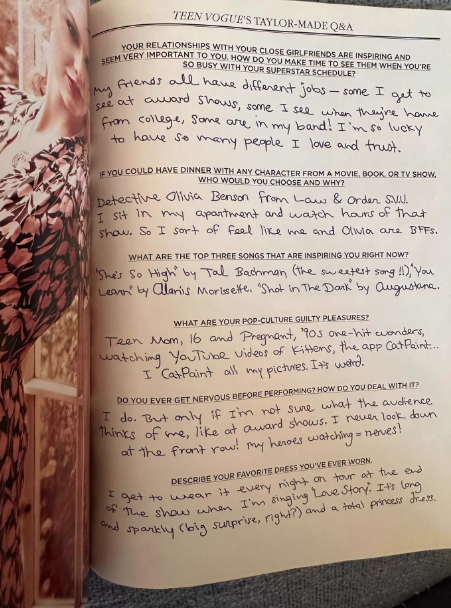 TEEN VOGUE'S TAYLOR-MADE Q&A
YOUR RELATIONSHIPS WITH YOUR CLOSE GIRLFRIENDS ARE INSPIRING AND
SEEM VERY IMPORTANT TO YOU. HOW DO YOU MAKE TIME TO SEE THEM WHEN YOU'RE
SO BUSY WITH YOUR SUPERSTAR SCHEDULE?
My friends all have different jobs—some I get to
see at award shows, some I see when they're home
from college, some are in my band! I'm so lucky
to have so many people I love and trust.
IF YOU COULD HAVE DINNER WITH ANY CHARACTER FROM A MOVIE, BOOK, OR TV SHOW,
WHO WOULD YOU CHOOSE AND WHY?
Detective Olivia Benson from Law & Order SVU.
I sit in my apartment and watch hours of that
show. So I sort of feel like me and Olivia are BFFs.
WHAT ARE THE TOP THREE SONGS THAT ARE INSPIRING YOU RIGHT NOW?
"She's So High" by Tal Bachman (the sweetest song!!), "You
Learn" by Alanis Morissette. "Shot in The Dark" by Augustana.
WHAT ARE YOUR POP-CULTURE GUILTY PLEASURES?
Teen Mom, 16 and Pregnant, '90s one-hit wonders,
watching YouTube videos of kittens, the app CatPaint...
I "CatPaint" all my pictures. It's weird.
DO YOU EVER GET NERVOUS BEFORE PERFORMING? HOW DO YOU DEAL WITH IT?
I do. But only if I'm not sure what the audience
thinks of me, like at award shows. I never look down
at the front row! My heroes watching = nerves!
DESCRIBE YOUR FAVORITE DRESS YOU'VE EVER WORN.
I get to wear it every night on tour at the end
of the show when I'm singing "Love Story." It's long
and sparkly (big surprise, right?) and a total princess dress.